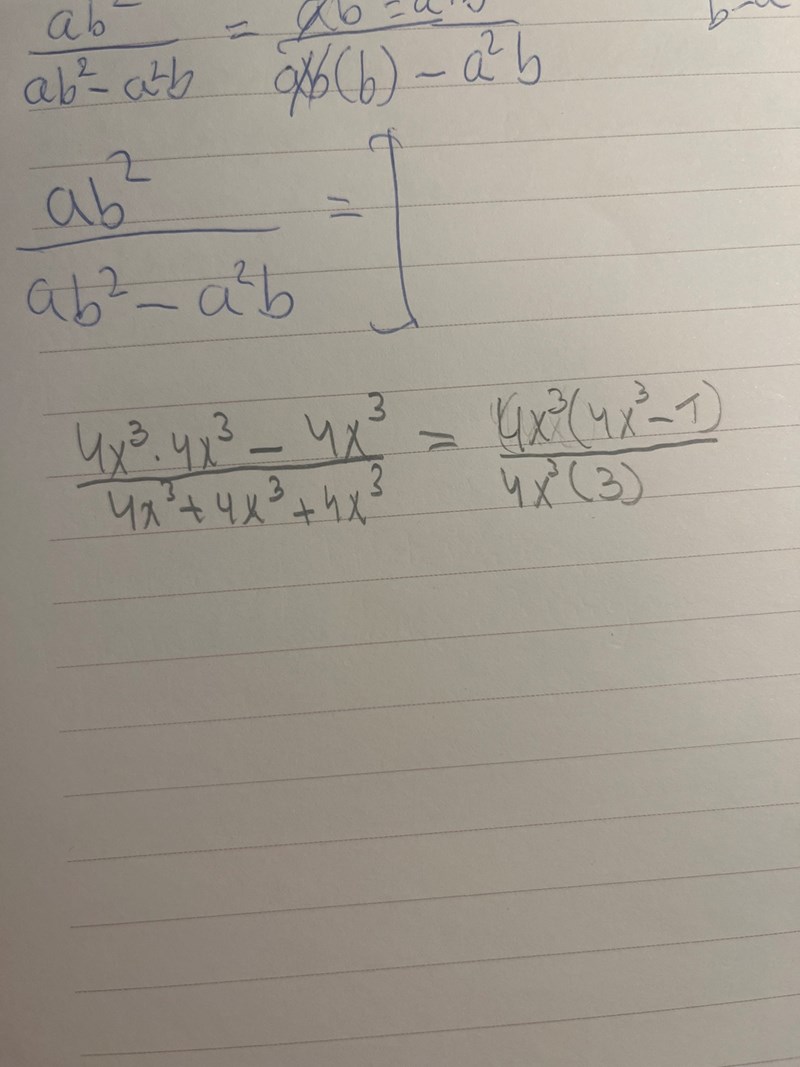 ab² / ab² - a²b = / ab(b) - a²b
ab² / ab² - a²b =
4x³ · 4x³ - 4x³ / 4x³ + 4x³ + 4x³ = 4x³(4x³ - 1) / 4x³(3)